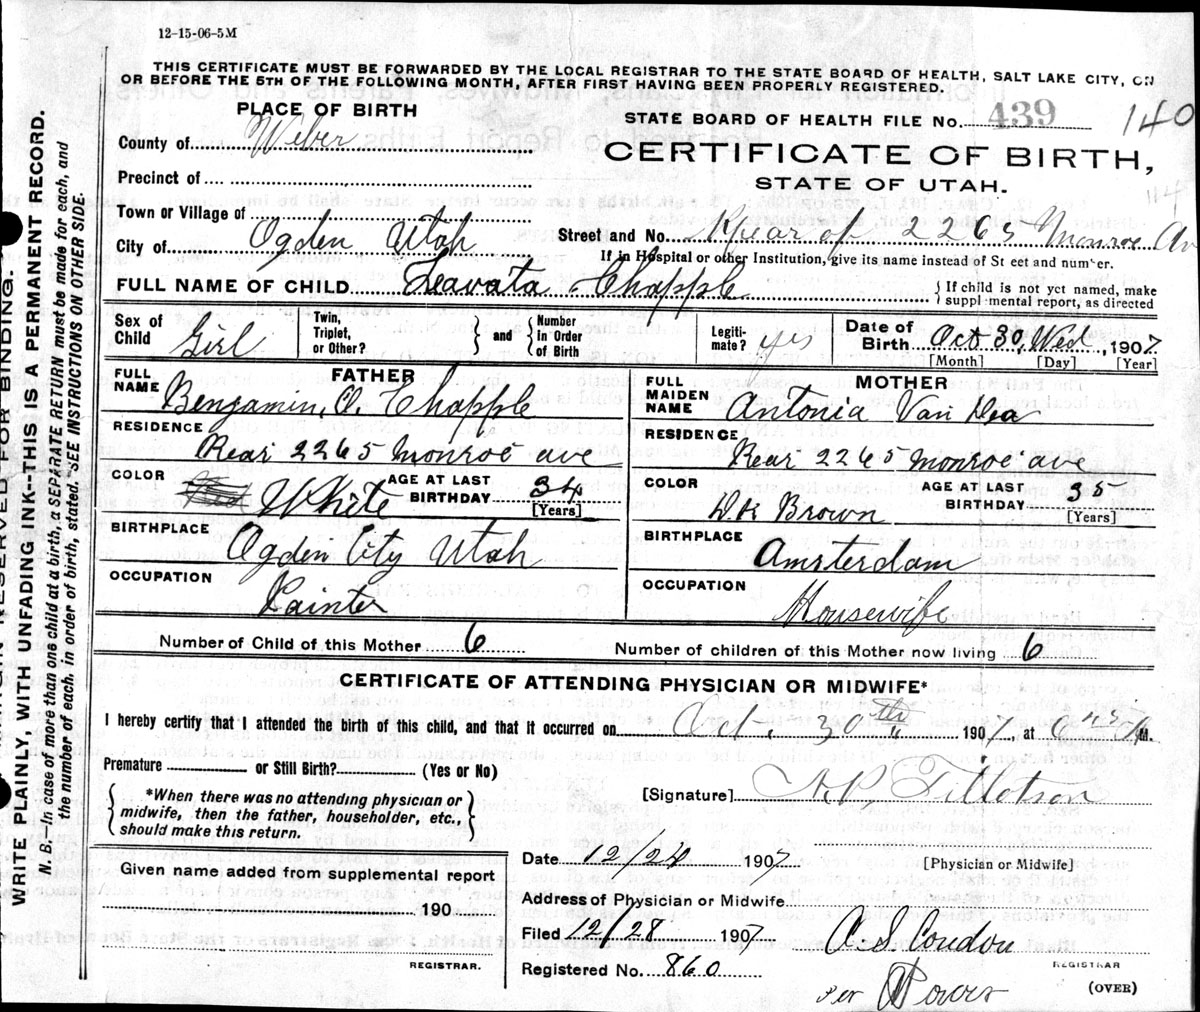 12-15-06-5M
THIS CERTIFICATE MUST BE FORWARDED BY THE LOCAL REGISTRAR TO THE STATE BOARD OF HEALTH, SALT LAKE CITY, ON
OR BEFORE THE 5TH OF THE FOLLOWING MONTH, AFTER FIRST HAVING BEEN PROPERLY REGISTERED.
PLACE OF BIRTH
STATE BOARD OF HEALTH FILE NO. 439 140
County of Weber
CERTIFICATE OF BIRTH,
114
Precinct of
STATE OF UTAH.
Town or Village of
City of Ogden Utah
Street and No. Rear of 2265 Monroe Av
If in Hospital or other Institution, give its name instead of St eet and number.
FULL NAME OF CHILD Leavata Chapple { If child is not yet named, make
suppl mental report, as directed
Sex of Child Girl Twin, Triplet, or Other? } and { Number in Order of Birth Legiti-mate? yes Date of Birth Oct 30, Wed, 1907
[Month] [Day] [Year]
FATHER
FULL NAME Benjamin, O. Chapple
RESIDENCE Rear 2265 Monroe ave
COLOR White AGE AT LAST BIRTHDAY 34
[Years]
BIRTHPLACE Ogden City Utah
OCCUPATION Painter
MOTHER
FULL MAIDEN NAME Antonia Van Dea
RESIDENCE Rear 2265 Monroe ave
COLOR Dk Brown AGE AT LAST BIRTHDAY 35
[Years]
BIRTHPLACE Amsterdam
OCCUPATION Housewife
Number of Child of this Mother 6 Number of children of this Mother now living 6
CERTIFICATE OF ATTENDING PHYSICIAN OR MIDWIFE*
I hereby certify that I attended the birth of this child, and that it occurred on Oct. 30th 1907 at 6 45 A M.
Premature or Still Birth? (Yes or No)
[Signature] Tillotson
{ *When there was no attending physician or
midwife, then the father, householder, etc.,
should make this return. }
Date 12/24 1907 [Physician or Midwife]
Given name added from supplemental report
190
REGISTRAR.
Address of Physician or Midwife
Filed 12/28 1907 C. S. Condon
REGISTRAR
Registered No. 860
per Powers
(OVER)
RESERVED FOR BINDING.
WRITE PLAINLY, WITH UNFADING INK--THIS IS A PERMANENT RECORD.
N. B.--In case of more than one child at a birth, a SEPARATE RETURN must be made for each, and
the number of each, in order of birth, stated. SEE INSTRUCTIONS ON OTHER SIDE.